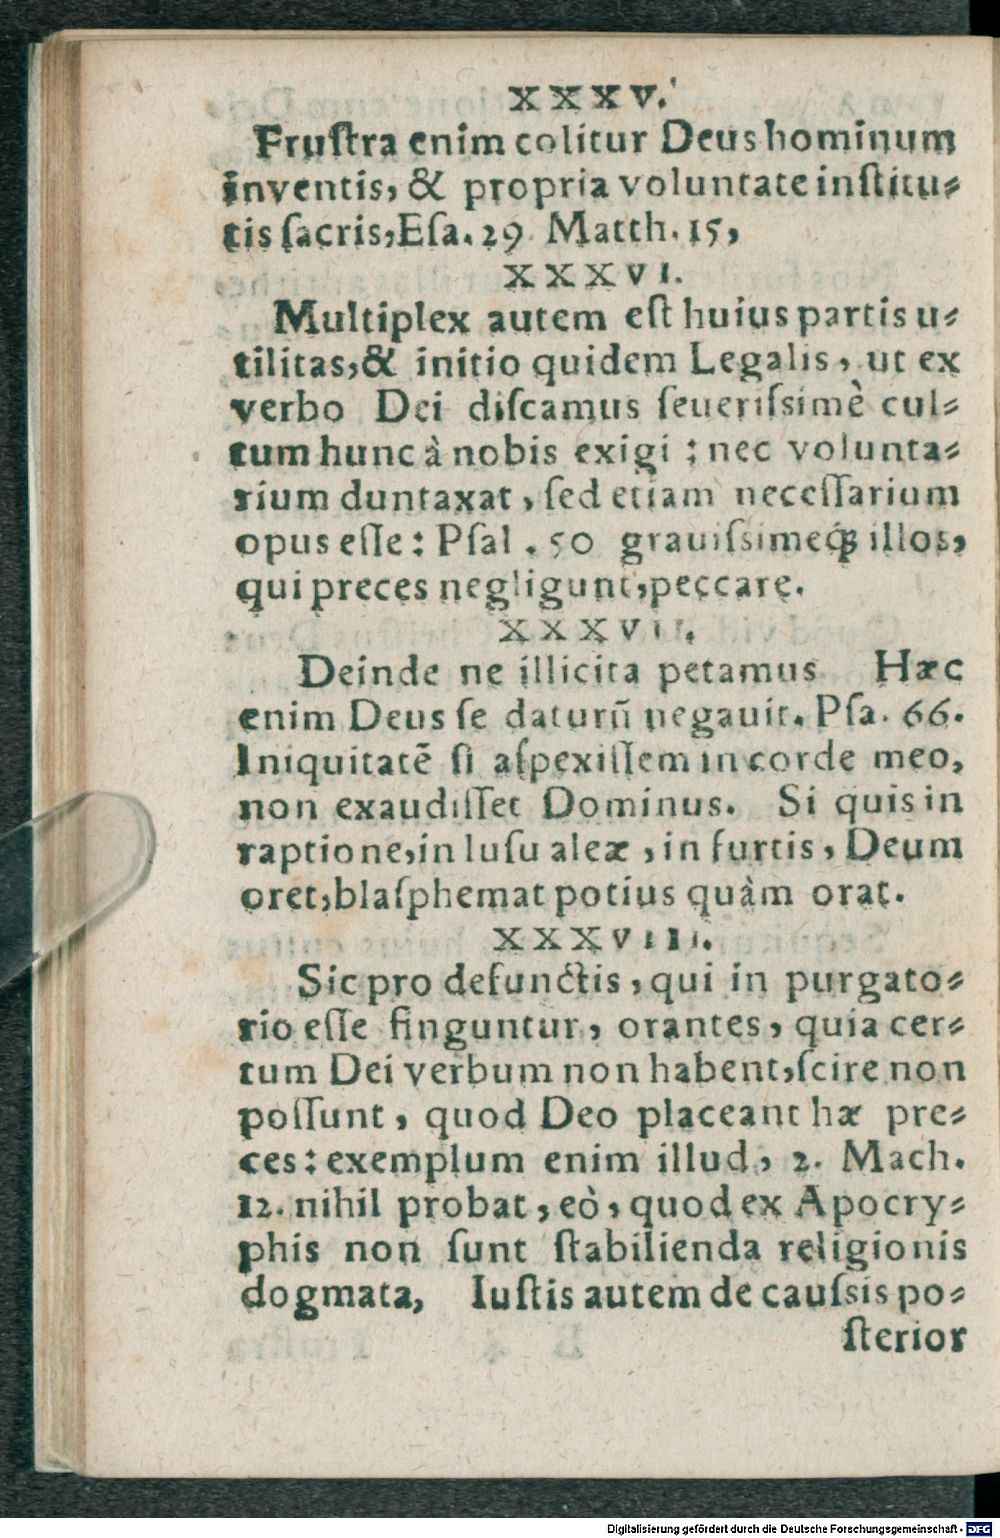 XXXV.
Fruſtra enim colitur Deus hominum
inventis, & propria voluntate inſtitu⸗
tis ſacris, Eſa. 29 Matth. 15,
XXXVI.
Multiplex autem eſt huius partis u⸗
tilitas, & initio quidem Legalis, ut ex
verbo Dei diſcamus ſeueriſsimè cul⸗
tum hunc à nobis exigi: nec volunta⸗
rium duntaxat, ſed etiam neceſſarium
opus eſſe: Pſal. 50 grauiſsimeq́; illos,
qui preces negligunt, peccare.
XXXVII.
Deinde ne illicita petamus Hæc
enim Deus ſe daturũ negauit. Pſa. 66.
Iniquitatẽ ſi aſpexiſſem in corde meo,
non exaudiſſet Dominus. Si quis in
raptione, in luſu aleæ, in furtis, Deum
oret, blaſphemat potius quàm orat.
XXXVIII.
Sic pro defunctis, qui in purgato⸗
rio eſſe finguntur, orantes, quia cer⸗
tum Dei verbum non habent, ſcire non
poſſunt, quod Deo placeant hæ pre⸗
ces: exemplum enim illud, 2. Mach.
12. nihil probat, eò, quod ex Apocry⸗
phis non ſunt ſtabilienda religionis
dogmata, Iuſtis autem de cauſsis po⸗
ſterior
Digitalisierung gefördert durch die Deutsche Forschungsgemeinschaft - DFG